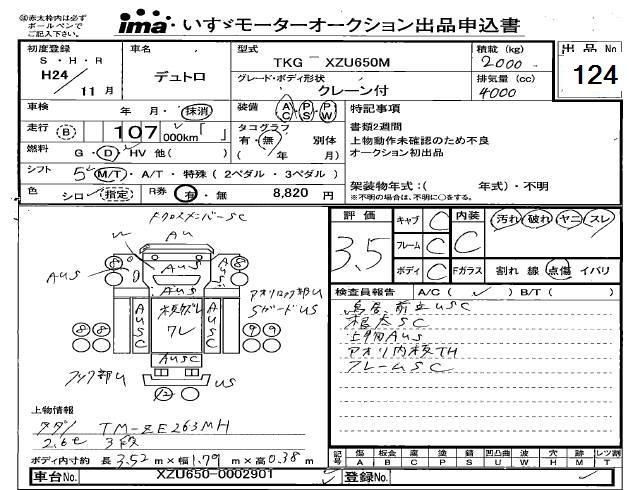 ◎赤太枠内は必ず
ボールペンで
ご記入下さい。
ima いすゞモーターオークション出品申込書
初度登録 車名 型式 積載(kg) 出品No
S・H・R TKG - XZU650M 2000
H24 デュトロ グレード・ボディ形状 排気量(cc) 124
11月 クレーン付 4000
車検 年 月・抹消 装備 AC PS PW 特記事項
走行 B 107 000km「 」 タコグラフ 書類2週間
有・無 別体 上物動作未確認のため不良
燃料 G・D・HV 他( ) ( 年 月) オークション初出品
シフト 5 M/T・A/T・特殊(2ペダル・3ペダル)
色 シロ(指定) R券 有・無 8,820 円 架装物年式:( 年式)・不明
※不明の場合は、不明に○をする。
評価 キャブ C 内装 汚れ 破れ ヤニ スレ
3.5 フレーム C C
ボディ C Fガラス 割れ 線 点傷 イバリ
検査員報告 A/C( ✓ ) B/T( )
鳥居、前立USC
根太SC
上物AUS
アオリ内板TH
フレームSC
FクロスメンバーSC
AU
AUS
AUS
AUS
アオリロック部U
SガードUS
AUSC
AUSC
AUSC
US
上物情報
タダノ TM-ZE263MH
2.6t 3段
ボディ内寸約 長3.52m×幅1.79m×高0.38m
記号 傷 板金 腐 塗 錆 凹凸曲 波 穴 跡 レツ割
A B C P S U W H M T
車台No. XZU650-0002901 登録No.